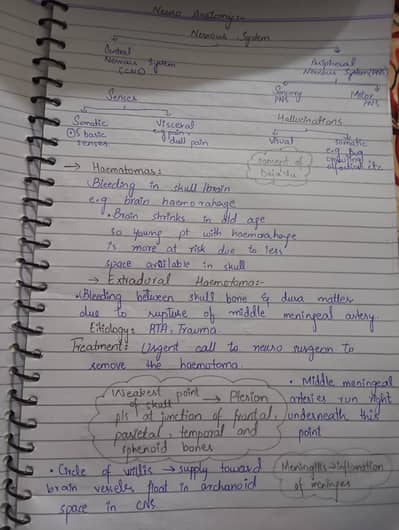 Neuro Anatomy:-
Nervous System
Central Nervous System (CNS)
Peripheral Nervous System (PNS)
Sensory PNS
Motor PNS
Senses
Somatic
5 basic senses
Visceral
e.g pain, dull pain
Hallucinations
Visual
Somatic
e.g. bug crawling
concept of
→ Haematomas:
Bleeding in skull/brain
e.g brain haemorrahage
• Brain shrinks in old age
so young pt with haemorrahage
is more at risk due to less
space available in skull
→ Extradural Haematoma:-
• Bleeding between skull bone & dura matter
due to rupture of middle meningeal artery.
Etiology: RTA, Trauma
Treatment: Urgent call to neuro surgeon to
remove the haematoma.
Weakest point of skull → Pterion
pt at junction of frontal,
parietal, temporal and
sphenoid bones
• Middle meningeal
arteries run right
underneath this
point
• Circle of willis → supply toward
brain vessels float in archanoid
space in CNS
Meningitis → inflamation
of meninges